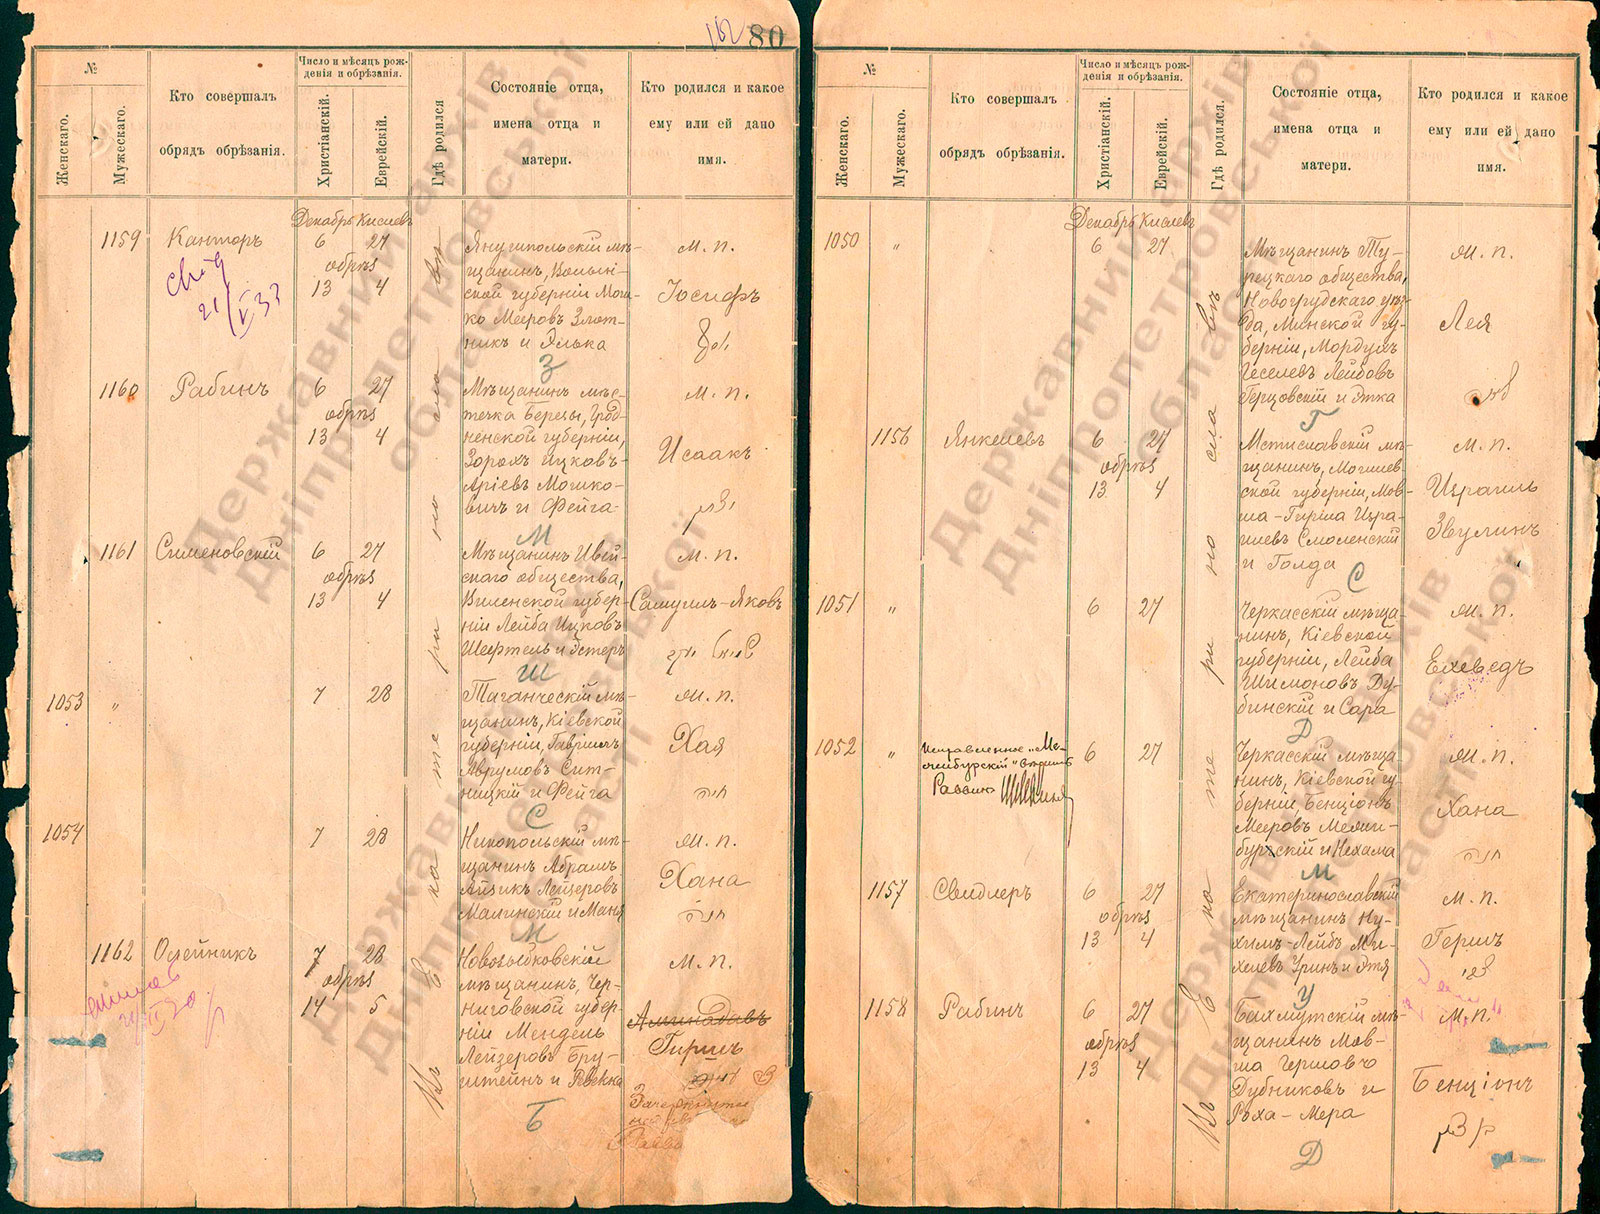 162 80
№
Женскаго.
Мужескаго.
Кто совершалъ
обрядъ обрѣзанія.
Число и мѣсяцъ рож-
денія и обрѣзанія.
Христіанскій.
Еврейскій.
Гдѣ родился.
Состояніе отца,
имена отца и
матери.
Кто родился и какое
ему или ей дано
имя.
Декабрь Кислевъ
Въ Екатеринославѣ
1159 Канторъ 6 27
обрѣз
13 4
Янушпольскій мѣ-
щанинъ, Волын-
ской губерніи Мош-
ко Мееровъ Злот-
никъ и Элька
З
м. п.
Іосифъ
1160 Рабинъ 6 27
обрѣз
13 4
Мѣщанинъ мѣс-
течка Березы, Грод-
ненской губерніи,
Зорохъ Ицковъ-
Аріевъ Мошко-
вичъ и Фейга
М
м. п.
Исаакъ
1161 Сименовскій 6 27
обрѣз
13 4
Мѣщанинъ Ивей-
скаго общества,
Виленской губер-
ніи Лейба Ицковъ
Шефтель и Эстеръ
Ш
м. п.
Самуилъ-Яковъ
1053 " 7 28
Таганческій мѣ-
щанинъ, Кіевской
губерніи, Гавріилъ
Аврумовъ Сит-
ницкій и Фейга
С
м. п.
Хая
חיה
1054 7 28
Никопольскій мѣ-
щанинъ Абрамъ
Айзикъ Лейзеровъ
Малинскій и Маня
М
м. п.
Хана
חנה
1162 Олейникъ 7 28
обрѣз
14 5
Новозыбковскій
мѣщанинъ, Чер-
ниговской губер-
ніи Мендель
Лейзеровъ Бру-
штейнъ и Ревекка
Б
м. п.
Аминадавъ
Гиршъ
№
Женскаго.
Мужескаго.
Кто совершалъ
обрядъ обрѣзанія.
Число и мѣсяцъ рож-
денія и обрѣзанія.
Христіанскій.
Еврейскій.
Гдѣ родился.
Состояніе отца,
имена отца и
матери.
Кто родился и какое
ему или ей дано
имя.
Декабрь Кислевъ
Въ Екатеринославѣ
1050 " 6 27
Мѣщанинъ Ту-
рецкаго общества,
Новогрудскаго уѣз-
да, Минской гу-
берніи, Мордухъ
Геселевъ Лейбовъ
Герцовскій и Этка
Г
м. п.
Лея
לאה
1156 Янкелевъ 6 27
обрѣз
13 4
Мстиславскій мѣ-
щанинъ, Могилев-
ской губерніи, Мов-
ша-Гирша Изра-
илевъ Смоленскій
и Голда
С
м. п.
Израиль
Звулинъ
1051 " 6 27
Черкасскій мѣща-
нинъ, Кіевской
губерніи, Лейба
Шимоновъ Ду-
бинскій и Сара
Д
м. п.
Ехеведъ
1052 " 6 27
Черкасскій мѣща-
нинъ, Кіевской гу-
берніи Бенціонъ
Мееровъ Межи-
бурскій и Нехама
М
м. п.
Хана
חנה
1157 Свидлеръ 6 27
обрѣз
13 4
Екатеринославскій
мѣщанинъ Ну-
химъ-Лейбъ Ми-
хелевъ Уринъ и Этя
У
м. п.
Гершъ
1158 Рабинъ 6 27
обрѣз
13 4
Бахмутскій мѣ-
щанинъ Мов-
ша Гершовъ
Дубниковъ и
Роха-Мера
Д
м. п.
Бенціонъ
Державний архів
Дніпропетровської
області